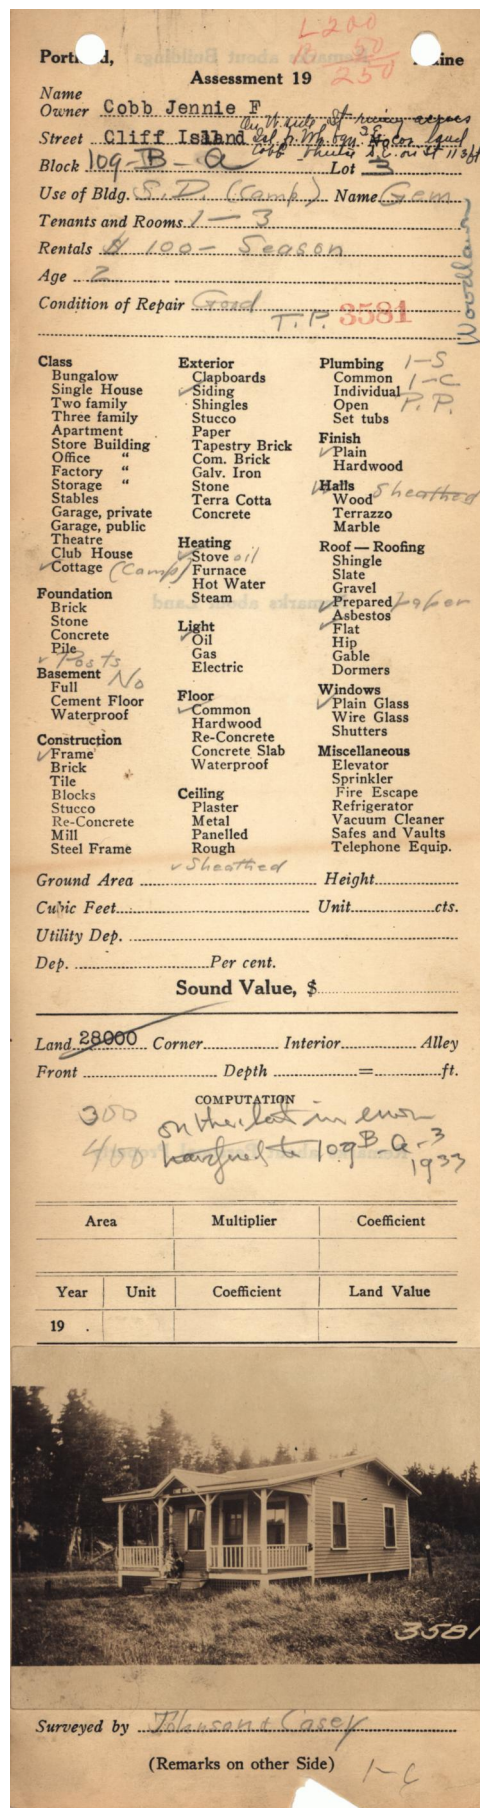 L 200
B 50
250
Portland, Maine
Assessment 19
Name
Owner Cobb Jennie F
Street Cliff Island
Block 109-B-Q Lot 3
Use of Bldg. S.D. (Camp) Name Gem
Woodlawn
Tenants and Rooms 1-3
Rentals $ 100- Season
Age 2
Condition of Repair Good
T.P. 3581
Class
Bungalow
Single House
Two family
Three family
Apartment
Store Building
Office "
Factory "
Storage "
Stables
Garage, private
Garage, public
Theatre
Club House
✓Cottage (Camp)
Foundation
Brick
Stone
Concrete
Pile
✓ Posts
Basement No
Full
Cement Floor
Waterproof
Construction
✓Frame
Brick
Tile
Blocks
Stucco
Re-Concrete
Mill
Steel Frame
Exterior
Clapboards
✓Siding
Shingles
Stucco
Paper
Tapestry Brick
Com. Brick
Galv. Iron
Stone
Terra Cotta
Concrete
Heating
✓Stove oil
Furnace
Hot Water
Steam
Light
✓Oil
Gas
Electric
Floor
✓Common
Hardwood
Re-Concrete
Concrete Slab
Waterproof
Ceiling
Plaster
Metal
Panelled
Rough
✓Sheathed
Plumbing 1-S
Common 1-C
Individual P.P.
Open
Set tubs
Finish
✓Plain
Hardwood
Halls
Wood Sheathed
Terrazzo
Marble
Roof — Roofing
Shingle
Slate
Gravel
✓Prepared paper
Asbestos
✓Flat
Hip
Gable
Dormers
Windows
✓Plain Glass
Wire Glass
Shutters
Miscellaneous
Elevator
Sprinkler
Fire Escape
Refrigerator
Vacuum Cleaner
Safes and Vaults
Telephone Equip.
Ground Area Height
Cubic Feet Unit cts.
Utility Dep.
Dep. Per cent.
Sound Value, $
Land 28000 Corner Interior Alley
Front Depth = ft.
COMPUTATION
300 on the lot in error
400 transferred to 109B-Q-3
1933
Area Multiplier Coefficient
Year Unit Coefficient Land Value
19 .
3581
Surveyed by Johnson & Casey
(Remarks on other Side)
1-C